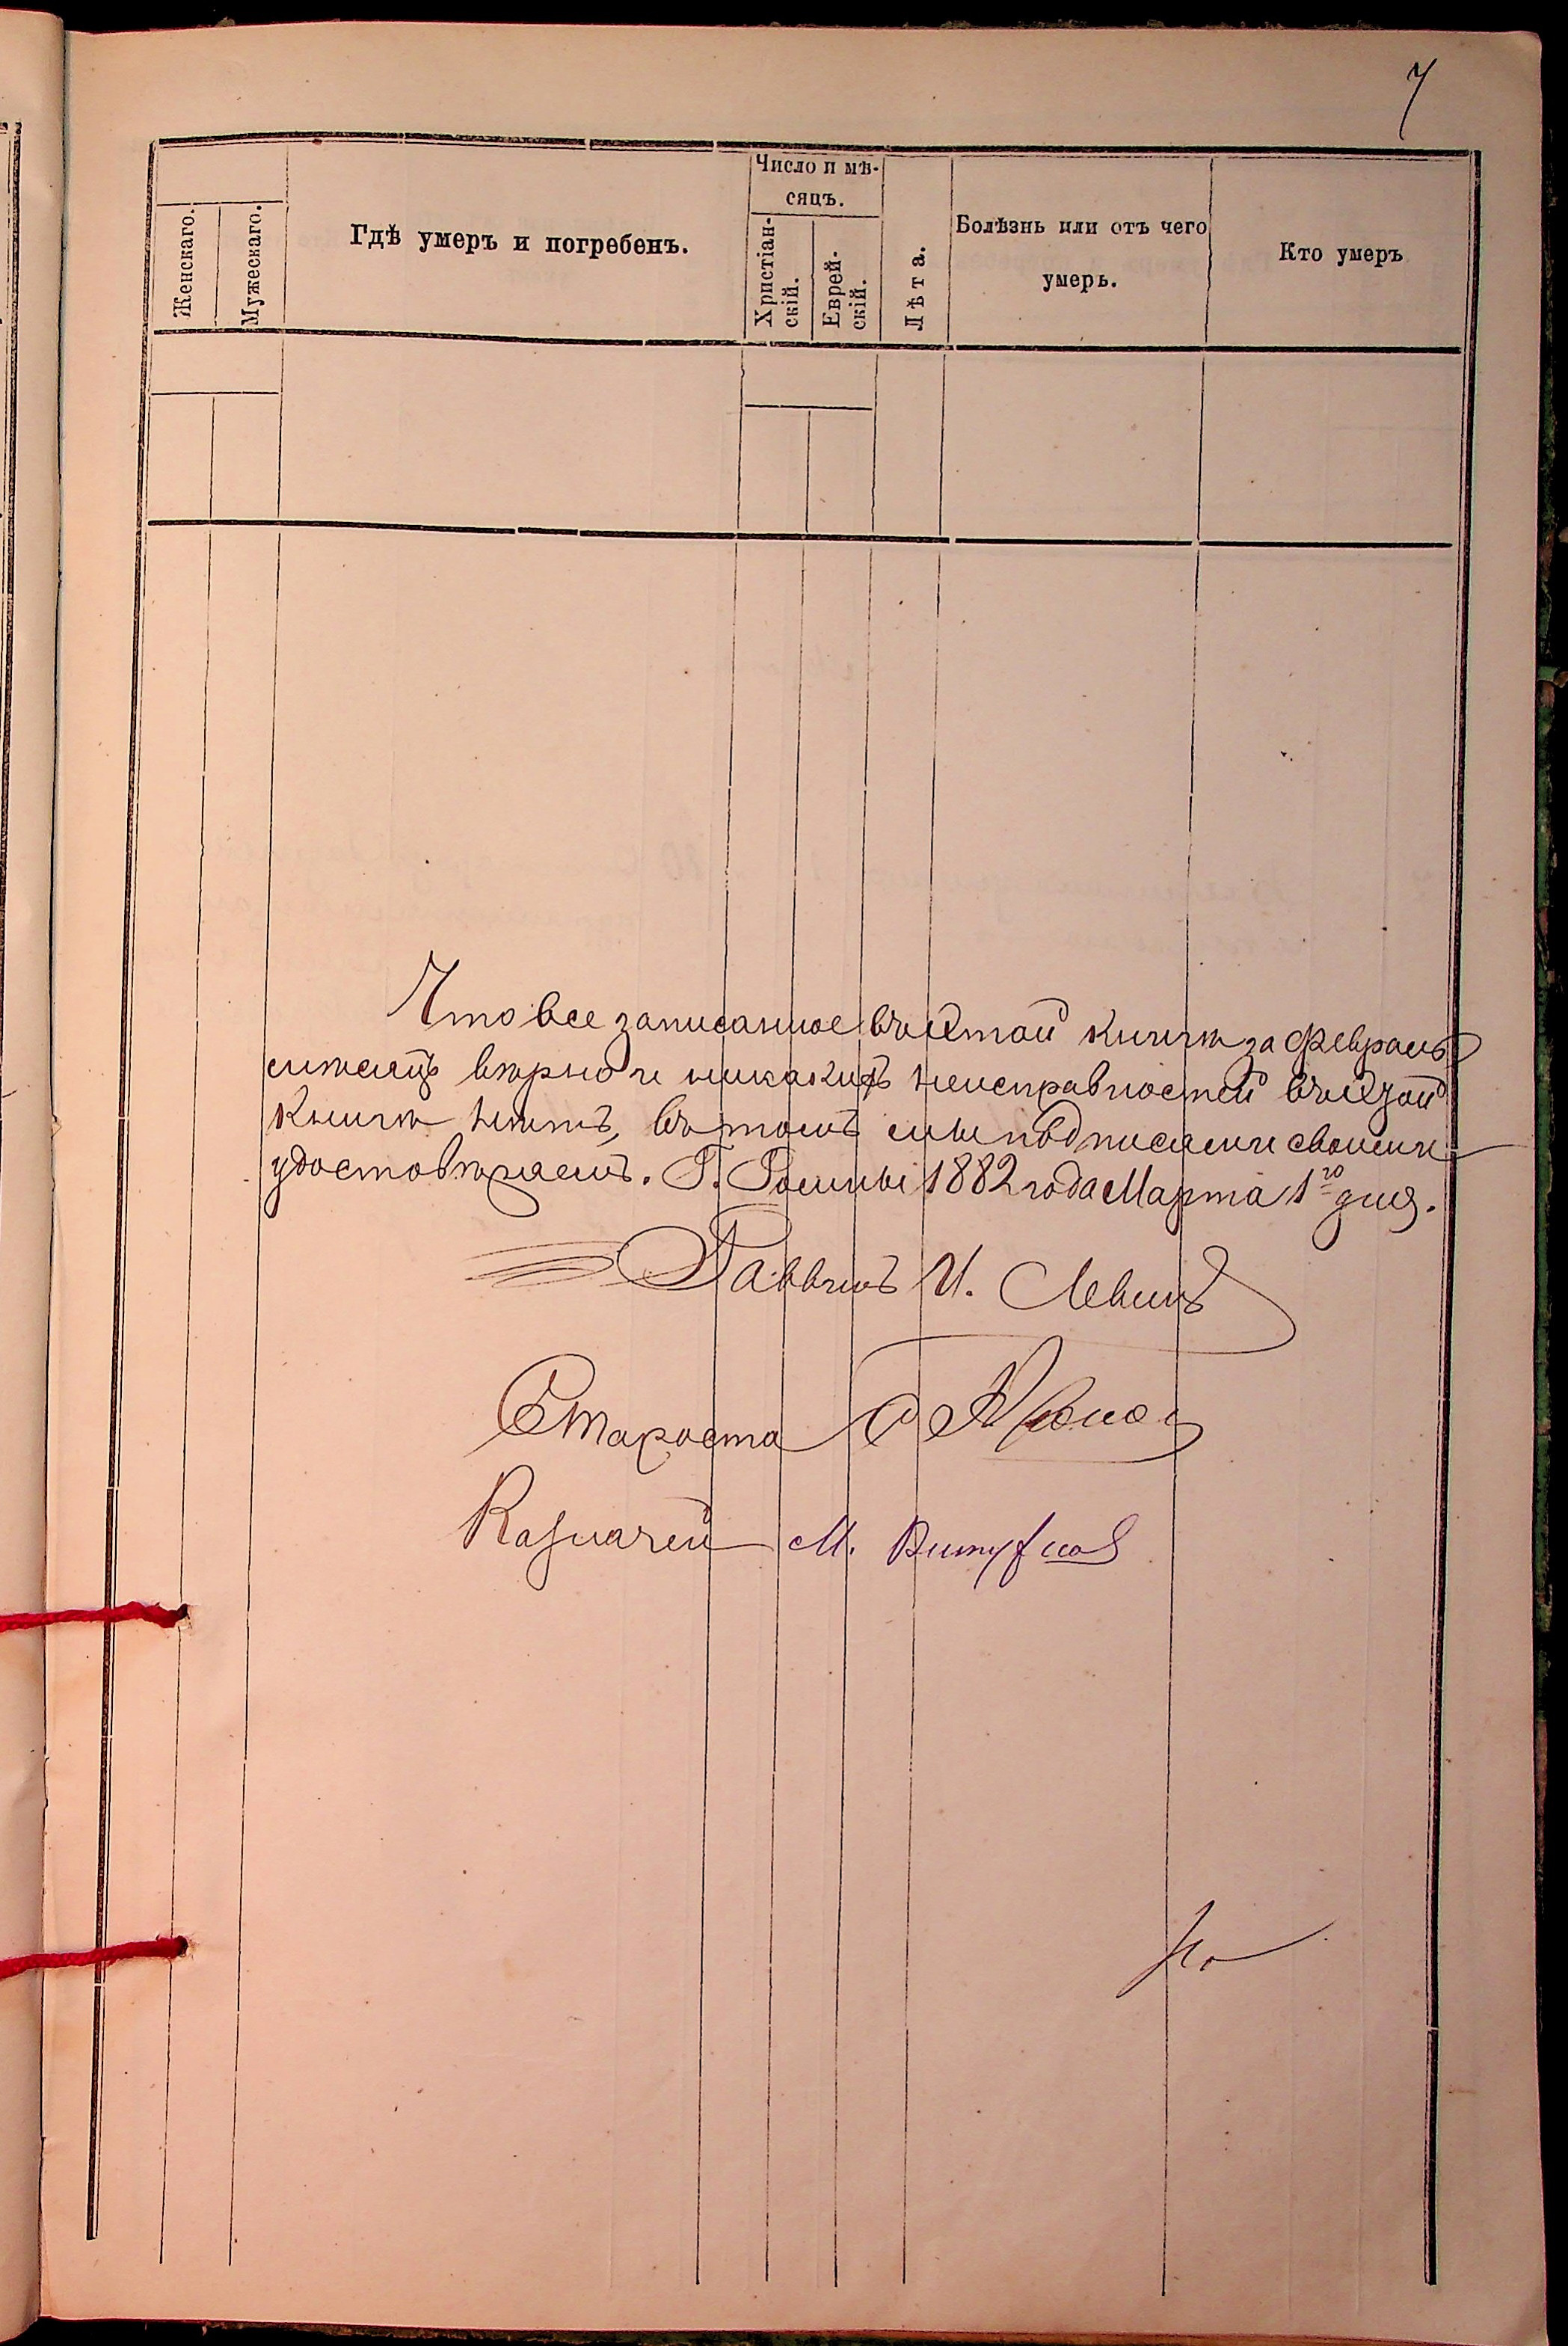 7
Женскаго.
Мужескаго.
Гдѣ умеръ и погребенъ.
Число и мѣ-
сяцъ.
Христіан-
скій.
Еврей-
скій.
Лѣта.
Болѣзнь или отъ чего
умеръ.
Кто умеръ
Что все записанное въ этой книгѣ за Февраль
мѣсяцъ вѣрно и никакихъ неисправностей въ этой
книгѣ нѣтъ, въ томъ мы подписями своими
удостовѣряемъ. Г. Ромны 1882 года Марта 1го дня.
Раввинъ И. Левинъ
Староста
Казначей М.